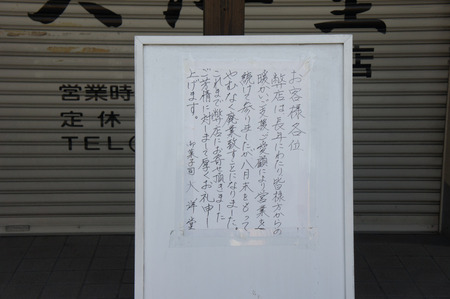 営業時
定休
TEL
お客様各位
弊店は長年にわたり皆様方からの
暖かいご支援ご愛顧により営業を
続けて参りましたが八月末をもって
やむなく廃業致すことになりました。
これまで弊店にお寄せ頂きました
ご芳情に対しまして厚くお礼申し
上げます。
御菓子司 大洋堂